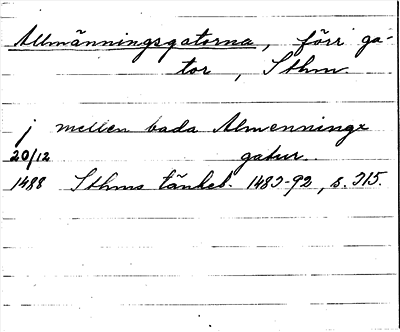 Allmänningsgatorna, förr ga-
tor, Sthm.
j mellen bada Almenninge
20/12 gatur.
1488 Sthms tänkeb. 1483-92, s. 315.